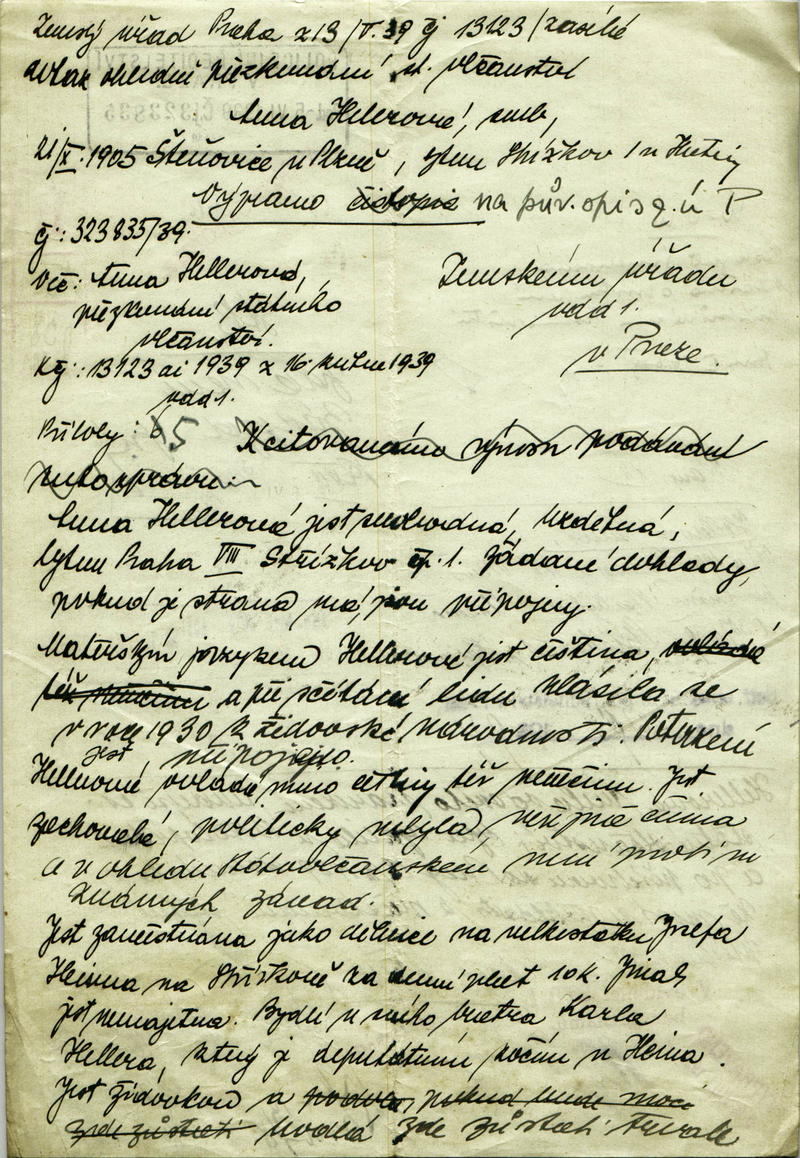 Zemský úřad Praha z 13/V.39 čj 13123/zasílá
dotaz ohledně přezkoumání st. občanství
Anna Hellerové, nar.
21/X.1905 Štěnovice u Plzně, bytem Střížkov 1
Výpravno čistopis na pův. opis q. ú P
čj: 323835/39.
Věc: Anna Hellerová,
přezkoumání státního
občanství.
Zemskému úřadu
odd 1.
v Praze.
K čj: 13123 ai 1939 z 16. května 1939
odd 1.
Přílohy: 5
K citovanému výnosu podávám
tuto zprávu:
Anna Hellerová jest svobodná, bezdětná,
bytem Praha VIII Střížkov čp. 1. žádané doklady,
pokud je strana má, jsou připojeny.
Mateřským jazykem Hellerové jest čeština, ovládá
též němčinu a při sčítání lidu hlásila se
v roce 1930 k židovské národnosti. Potvrzení
jest připojeno.
Hellerová ovládá mimo češtiny též němčinu. Jest
zachovalá, politicky nebyla veřejně činna
a v ohledu státoobčanském není proti ní
známých závad.
Jest zaměstnána jako dělnice na velkostatku Josefa
Heina na Střížkově za denní plat 10 K. Jinak
jest nemajetna. Bydlí u svého bratra Karla
Hellera, který je deputátním kočím u Heina.
Jest židovkou a podle, pokud bude moci
zde zůstati hodlá zde zůstati trvale